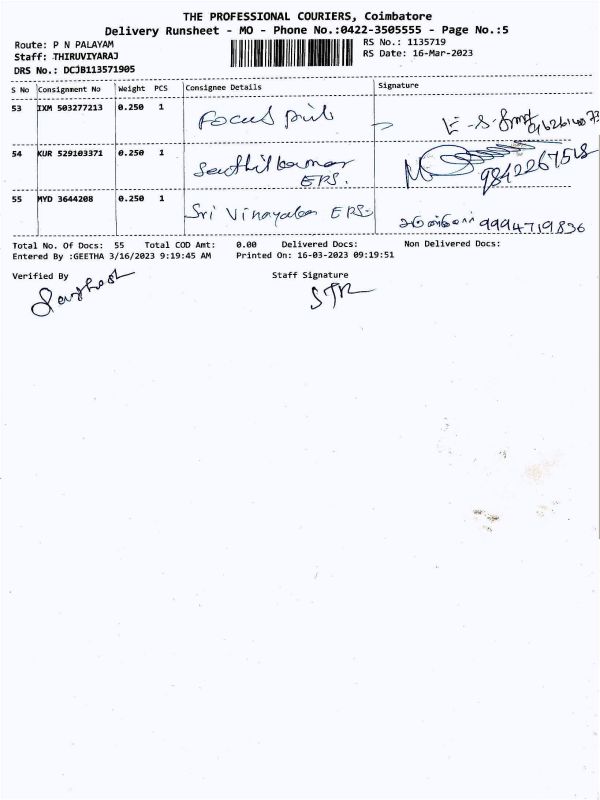 THE PROFESSIONAL COURIERS, Coimbatore
Delivery Runsheet - MO - Phone No.:0422-3505555 - Page No.:5
Route: P N PALAYAM RS No.: 1135719
Staff: THIRUVIYARAJ RS Date: 16-Mar-2023
DRS No.: DCJB113571905
S No Consignment No Weight PCS Consignee Details Signature
53 IXM 503277213 0.250 1 Focus
54 KUR 529103371 0.250 1 Senthilkumar
EPS.
55 MYD 3644208 0.250 1 Sri Vinayaka EPS 9994719896
Total No. Of Docs: 55 Total COD Amt: 0.00 Delivered Docs: Non Delivered Docs:
Entered By :GEETHA 3/16/2023 9:19:45 AM Printed On: 16-03-2023 09:19:51
Verified By Staff Signature